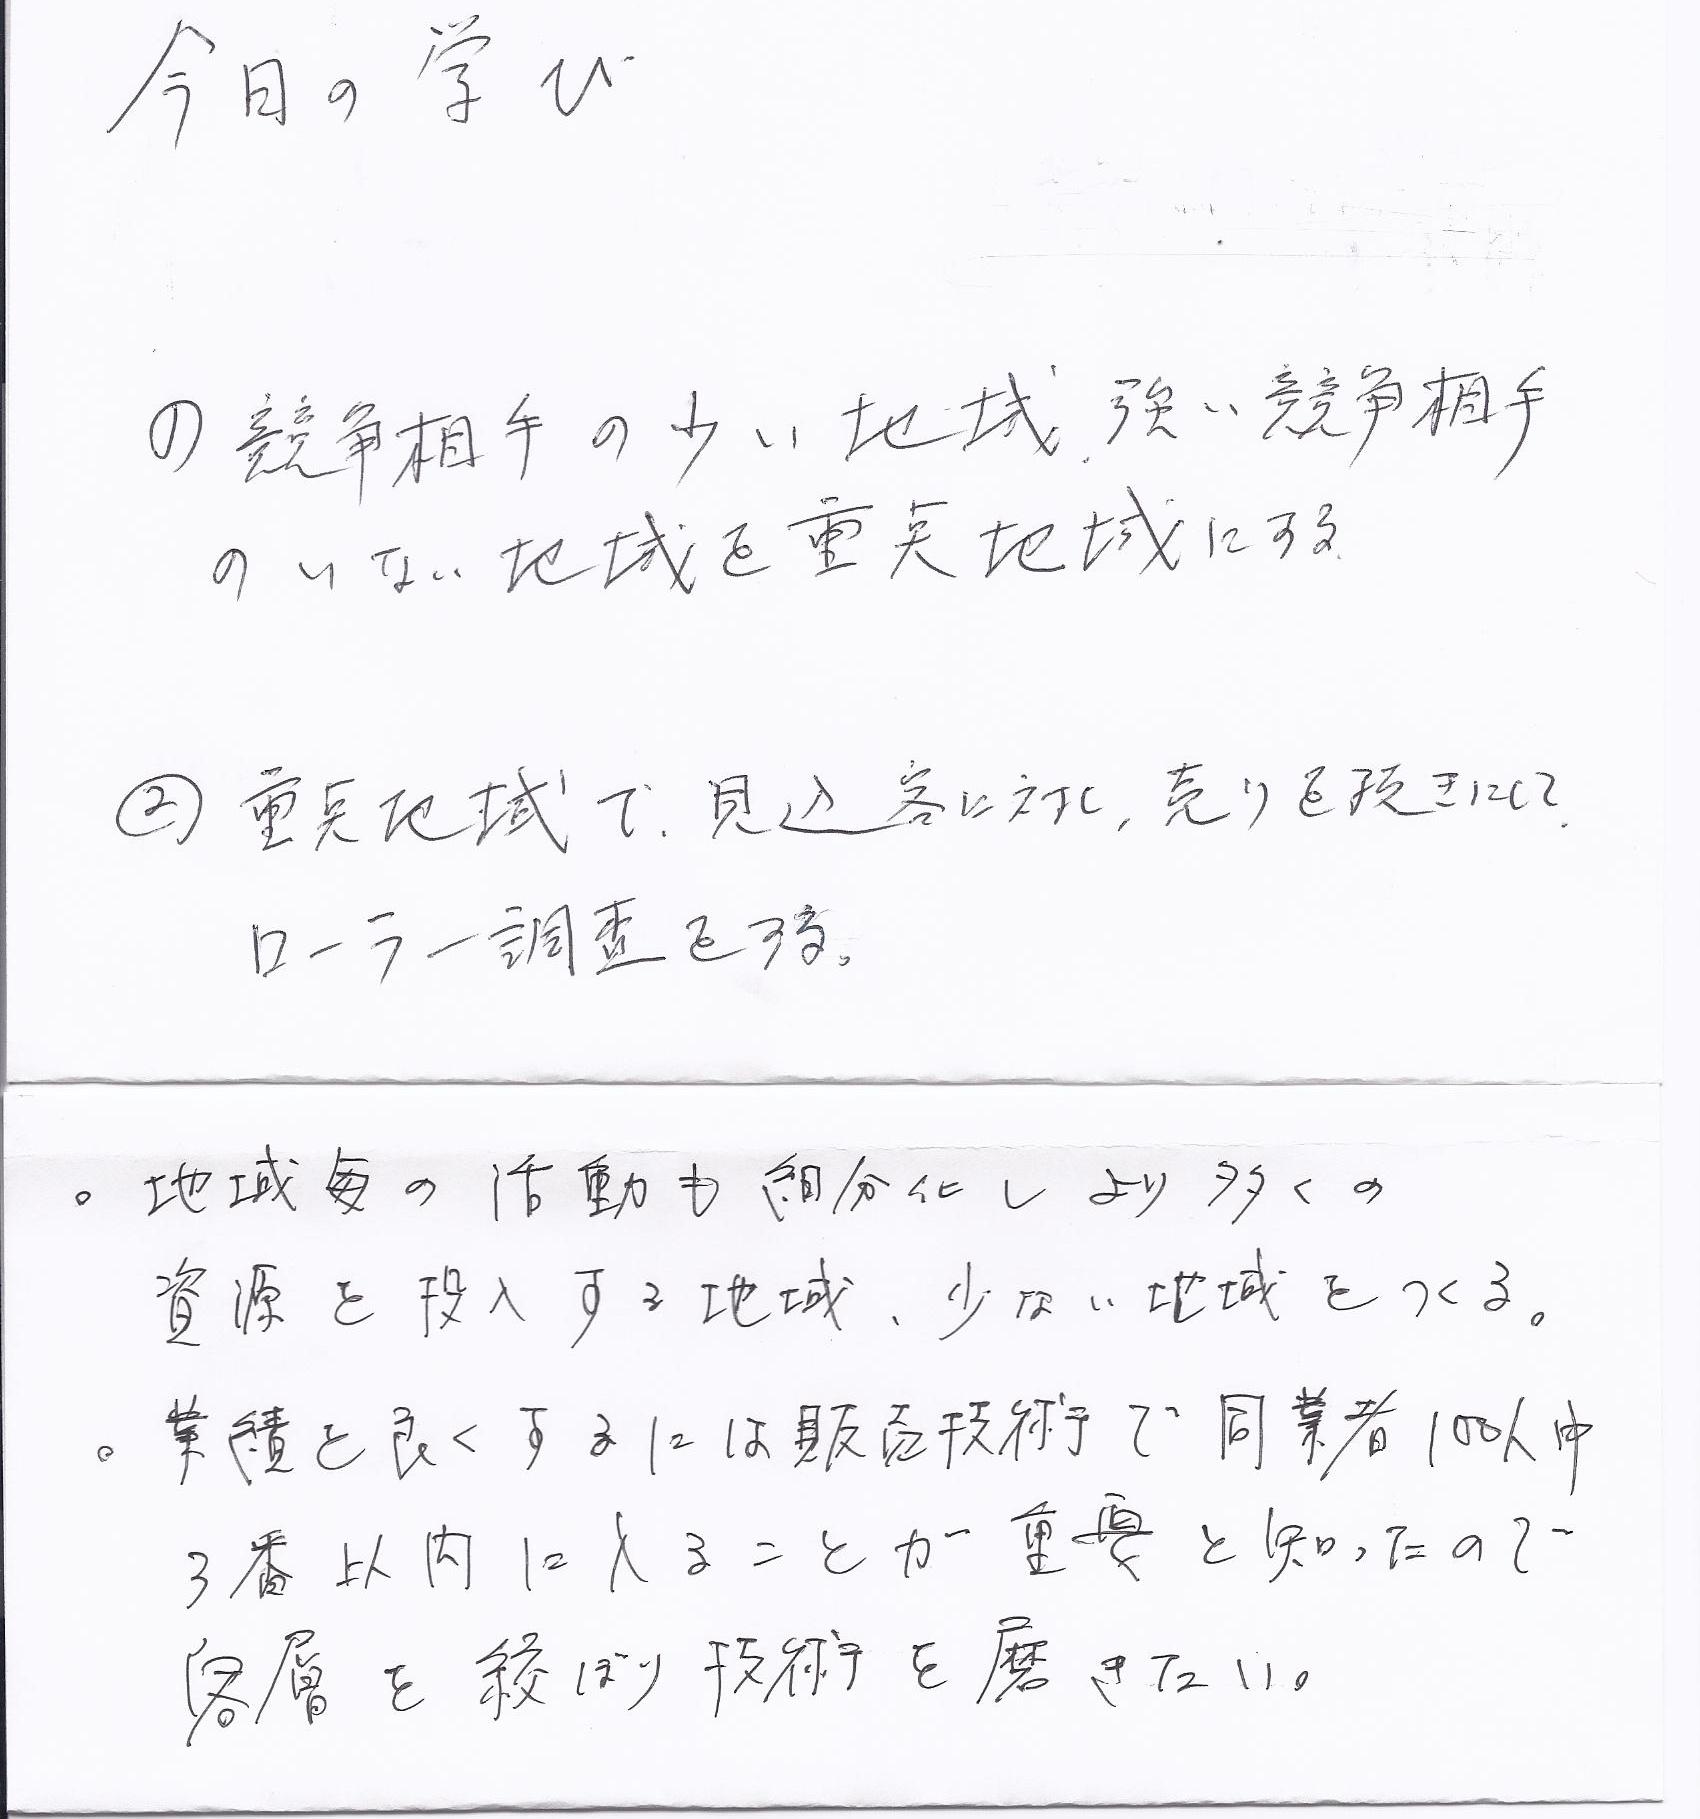 今日の学び
① 競争相手の少い地域、強い競争相手
のいない地域を重点地域にする
② 重点地域で、見込客に対し、売りを抜きにして、
ローラー調査をする。
。地域毎の活動も細分化しより多くの
資源を投入する地域、少ない地域をつくる。
。業績を良くするには販売技術で同業者100人中
3番以内に入ることが重要と知ったので
客層を絞ぼり技術を磨きたい。